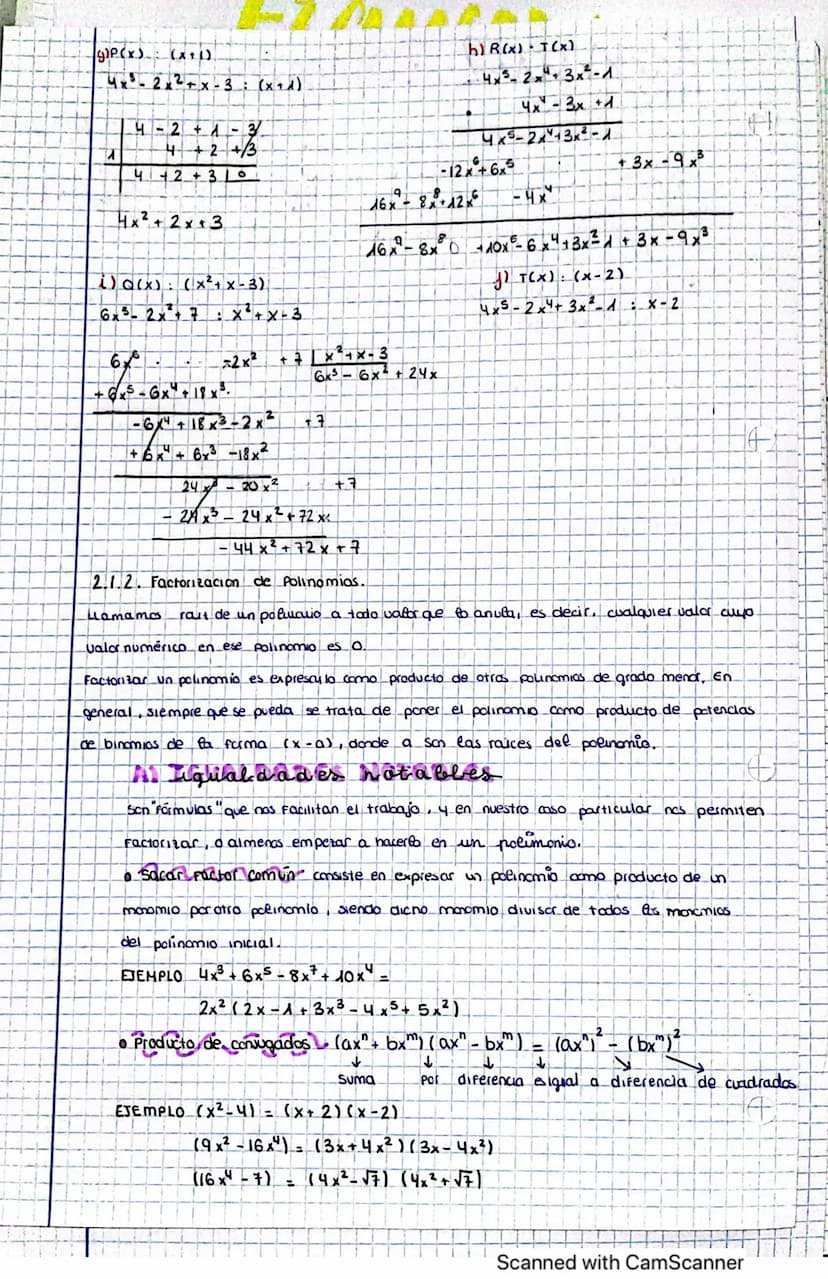 g) P(x) : (x+1)
4x³ - 2x² + x - 3 : (x+1)
4 - 2 + 1 - 3
1 4 + 2 + 3
4 + 2 + 3 | 0
4x² + 2x + 3
h) R(x) · T(x)
4x⁵ - 2x⁴ + 3x² - 1
· 4x⁴ - 3x + 1
4x⁵ - 2x⁴ + 3x² - 1
-12x⁶ + 6x⁵ + 3x - 9x³
16x⁹ - 8x⁸ + 12x⁶ - 4x⁴
16x⁹ - 8x⁸ 0 + 10x⁵ - 6x⁴ + 3x² - 1 + 3x - 9x³
i) Q(x) : (x² + x - 3)
6x⁵ - 2x² + 7 : x² + x - 3
6x⁵ · · -2x² + 7 | x² + x - 3
6x³ - 6x² + 24x
+ 6x⁵ - 6x⁴ + 18x³.
-6x⁴ + 18x³ - 2x² + 7
+ 6x⁴ + 6x³ - 18x²
24x³ - 20x² + 7
- 24x³ - 24x² + 72x
- 44x² + 72x + 7
j) T(x) : (x-2)
4x⁵ - 2x⁴ + 3x² - 1 : x - 2
2.1.2. Factorizacion de Polinomios.
Llamamos raíz de un polinomio a todo valor que lo anula, es decir, cualquier valor cuyo
valor numérico en ese polinomio es 0.
Factorizar un polinomio es expresarlo como producto de otros polinomios de grado menor. En
general, siempre que se pueda se trata de poner el polinomio como producto de potencias
de binomios de la forma (x-a), donde a son las raíces del polinomio.
A) Igualdades notables
Son "fórmulas" que nos facilitan el trabajo, y en nuestro caso particular nos permiten
factorizar, o almenos empezar a hacerlo en un polimonio.
• Sacar Factor común- consiste en expresar un polinomio como producto de un
monomio por otro polinomio, siendo dicho monomio divisor de todos los monomios
del polinomio inicial.
EJEMPLO 4x³ + 6x⁵ - 8x⁷ + 10x⁴ =
2x² (2x - 1 + 3x³ - 4x⁵ + 5x²)
• Producto de conjugados- (axⁿ + bxᵐ)(axⁿ - bxᵐ) = (axⁿ)² - (bxᵐ)²
↓ ↓ ↓ ↓ ↘ ↘
Suma por diferencia es igual a diferencia de cuadrados
EJEMPLO (x² - 4) = (x+2)(x-2)
(9x² - 16x⁴) = (3x + 4x²)(3x - 4x²)
(16x⁴ - 7) = (4x² - √7) (4x² + √7)
Scanned with CamScanner